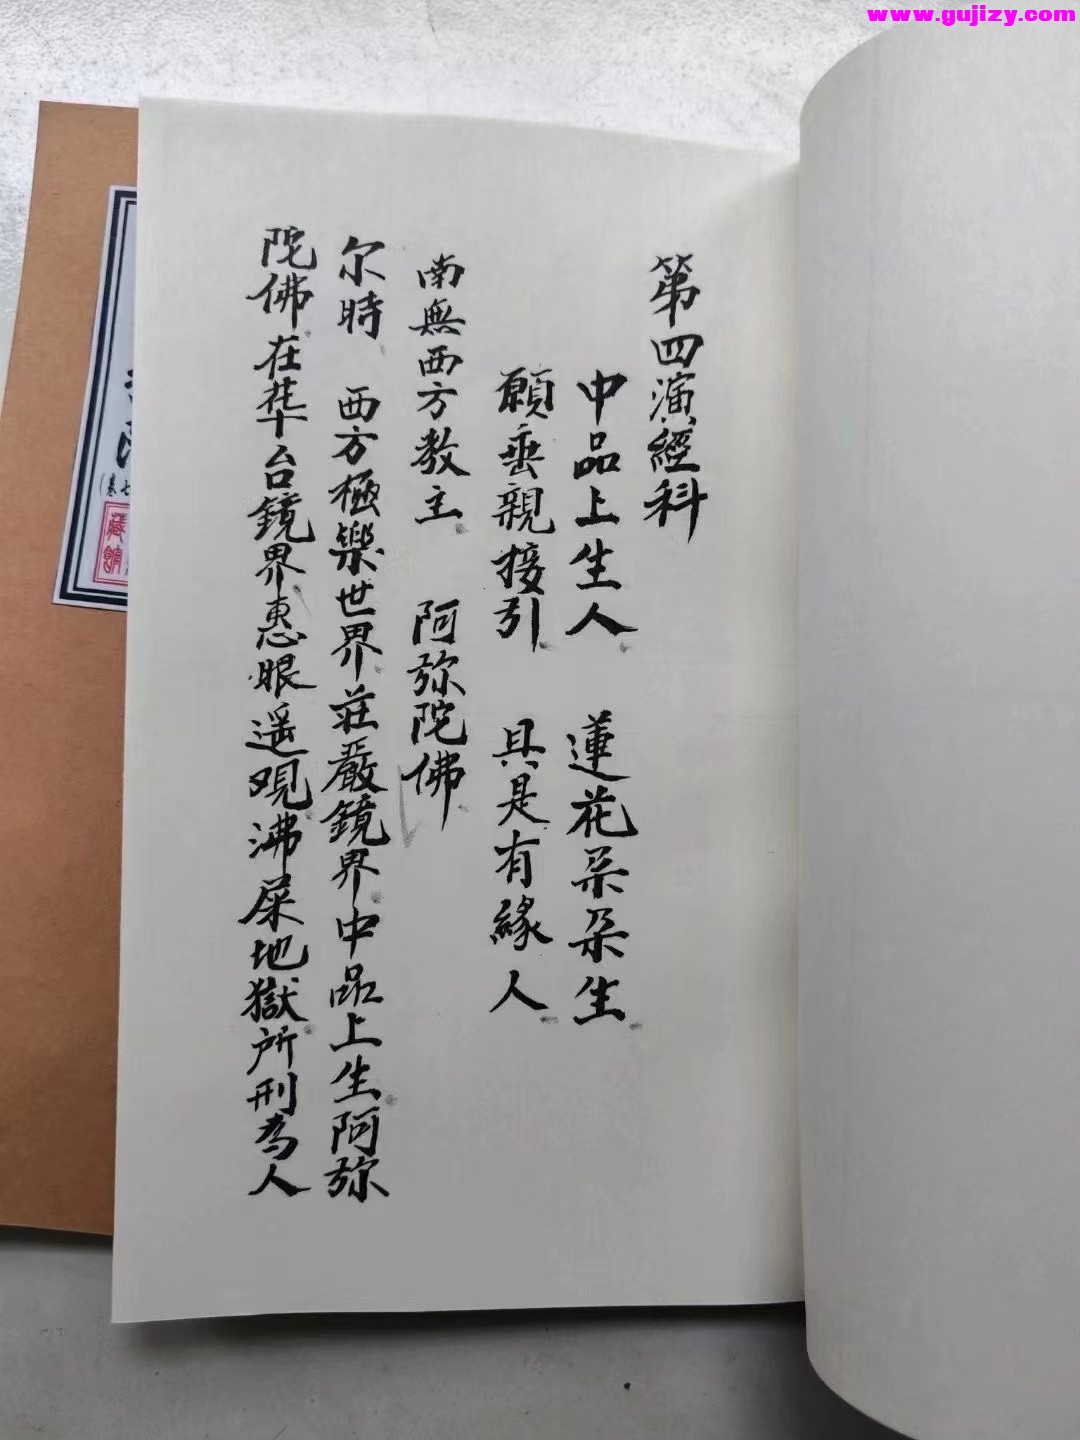 www.gujizy.com
第四演經科
中品上生人　蓮花朵朵生
願垂親接引　具是有緣人
南無西方教主　阿弥陀佛
尔時　西方極樂世界莊嚴鏡界中品上生阿弥
陀佛在华台鏡界惠眼遥观沸屎地獄所刑為人
(卷七
藏
館